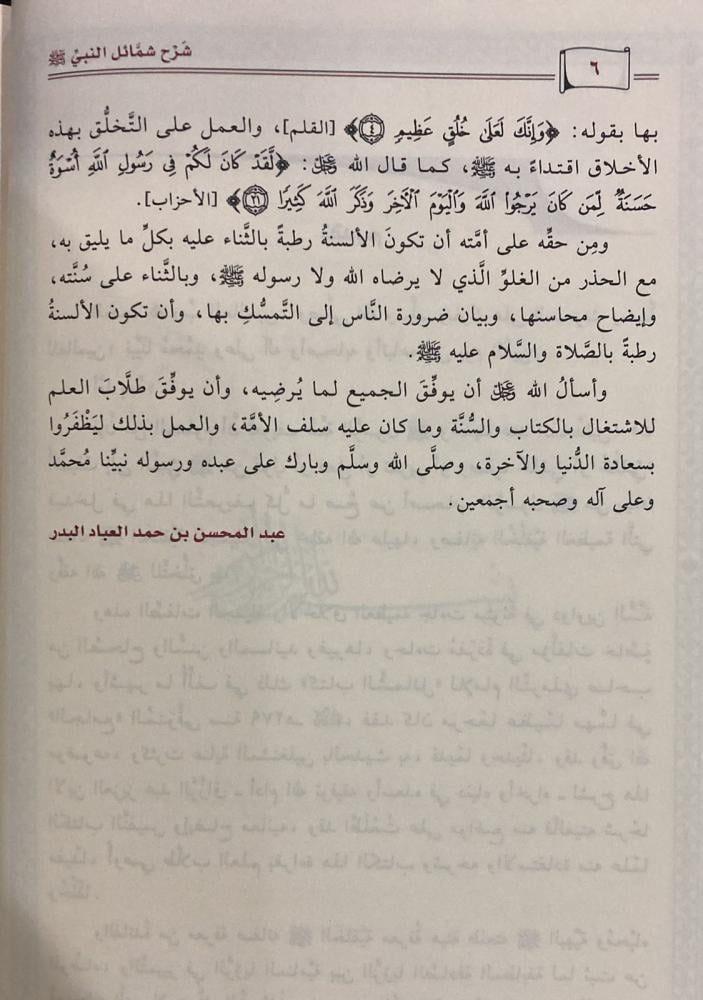 شَرْح شمَائل النبيِّ ﷺ
٦
بها بقوله: ﴿وَإِنَّكَ لَعَلَىٰ خُلُقٍ عَظِيمٍ ﴿٤﴾﴾ [القلم]، والعمل على التَّخلُّق بهذه
الأخلاق اقتداءً به ﷺ، كما قال الله ﷻ: ﴿لَّقَدْ كَانَ لَكُمْ فِي رَسُولِ ٱللَّهِ أُسْوَةٌ
حَسَنَةٌ لِّمَن كَانَ يَرْجُوا۟ ٱللَّهَ وَٱلْيَوْمَ ٱلْآخِرَ وَذَكَرَ ٱللَّهَ كَثِيرًا ﴿٢١﴾﴾ [الأحزاب].
ومِن حقِّه على أمَّته أن تكونَ الألسنةُ رطبةً بالثَّناء عليه بكلِّ ما يليق به،
مع الحذر من الغلوِّ الَّذي لا يرضاه الله ولا رسوله ﷺ، وبالثَّناء على سُنَّته،
وإيضاح محاسنها، وبيان ضرورة النَّاس إلى التَّمسُّكِ بها، وأن تكون الألسنةُ
رطبةً بالصَّلاة والسَّلام عليه ﷺ.
وأسألُ الله ﷻ أن يوفِّقَ الجميع لما يُرضِيه، وأن يوفِّقَ طلَّابَ العلم
للاشتغال بالكتاب والسُّنَّة وما كان عليه سلف الأمَّة، والعمل بذلك ليَظْفَرُوا
بسعادة الدُّنيا والآخرة، وصلَّى الله وسلَّم وبارك على عبده ورسوله نبيِّنا مُحمَّد
وعلى آله وصحبه أجمعين.
عبد المحسن بن حمد العباد البدر